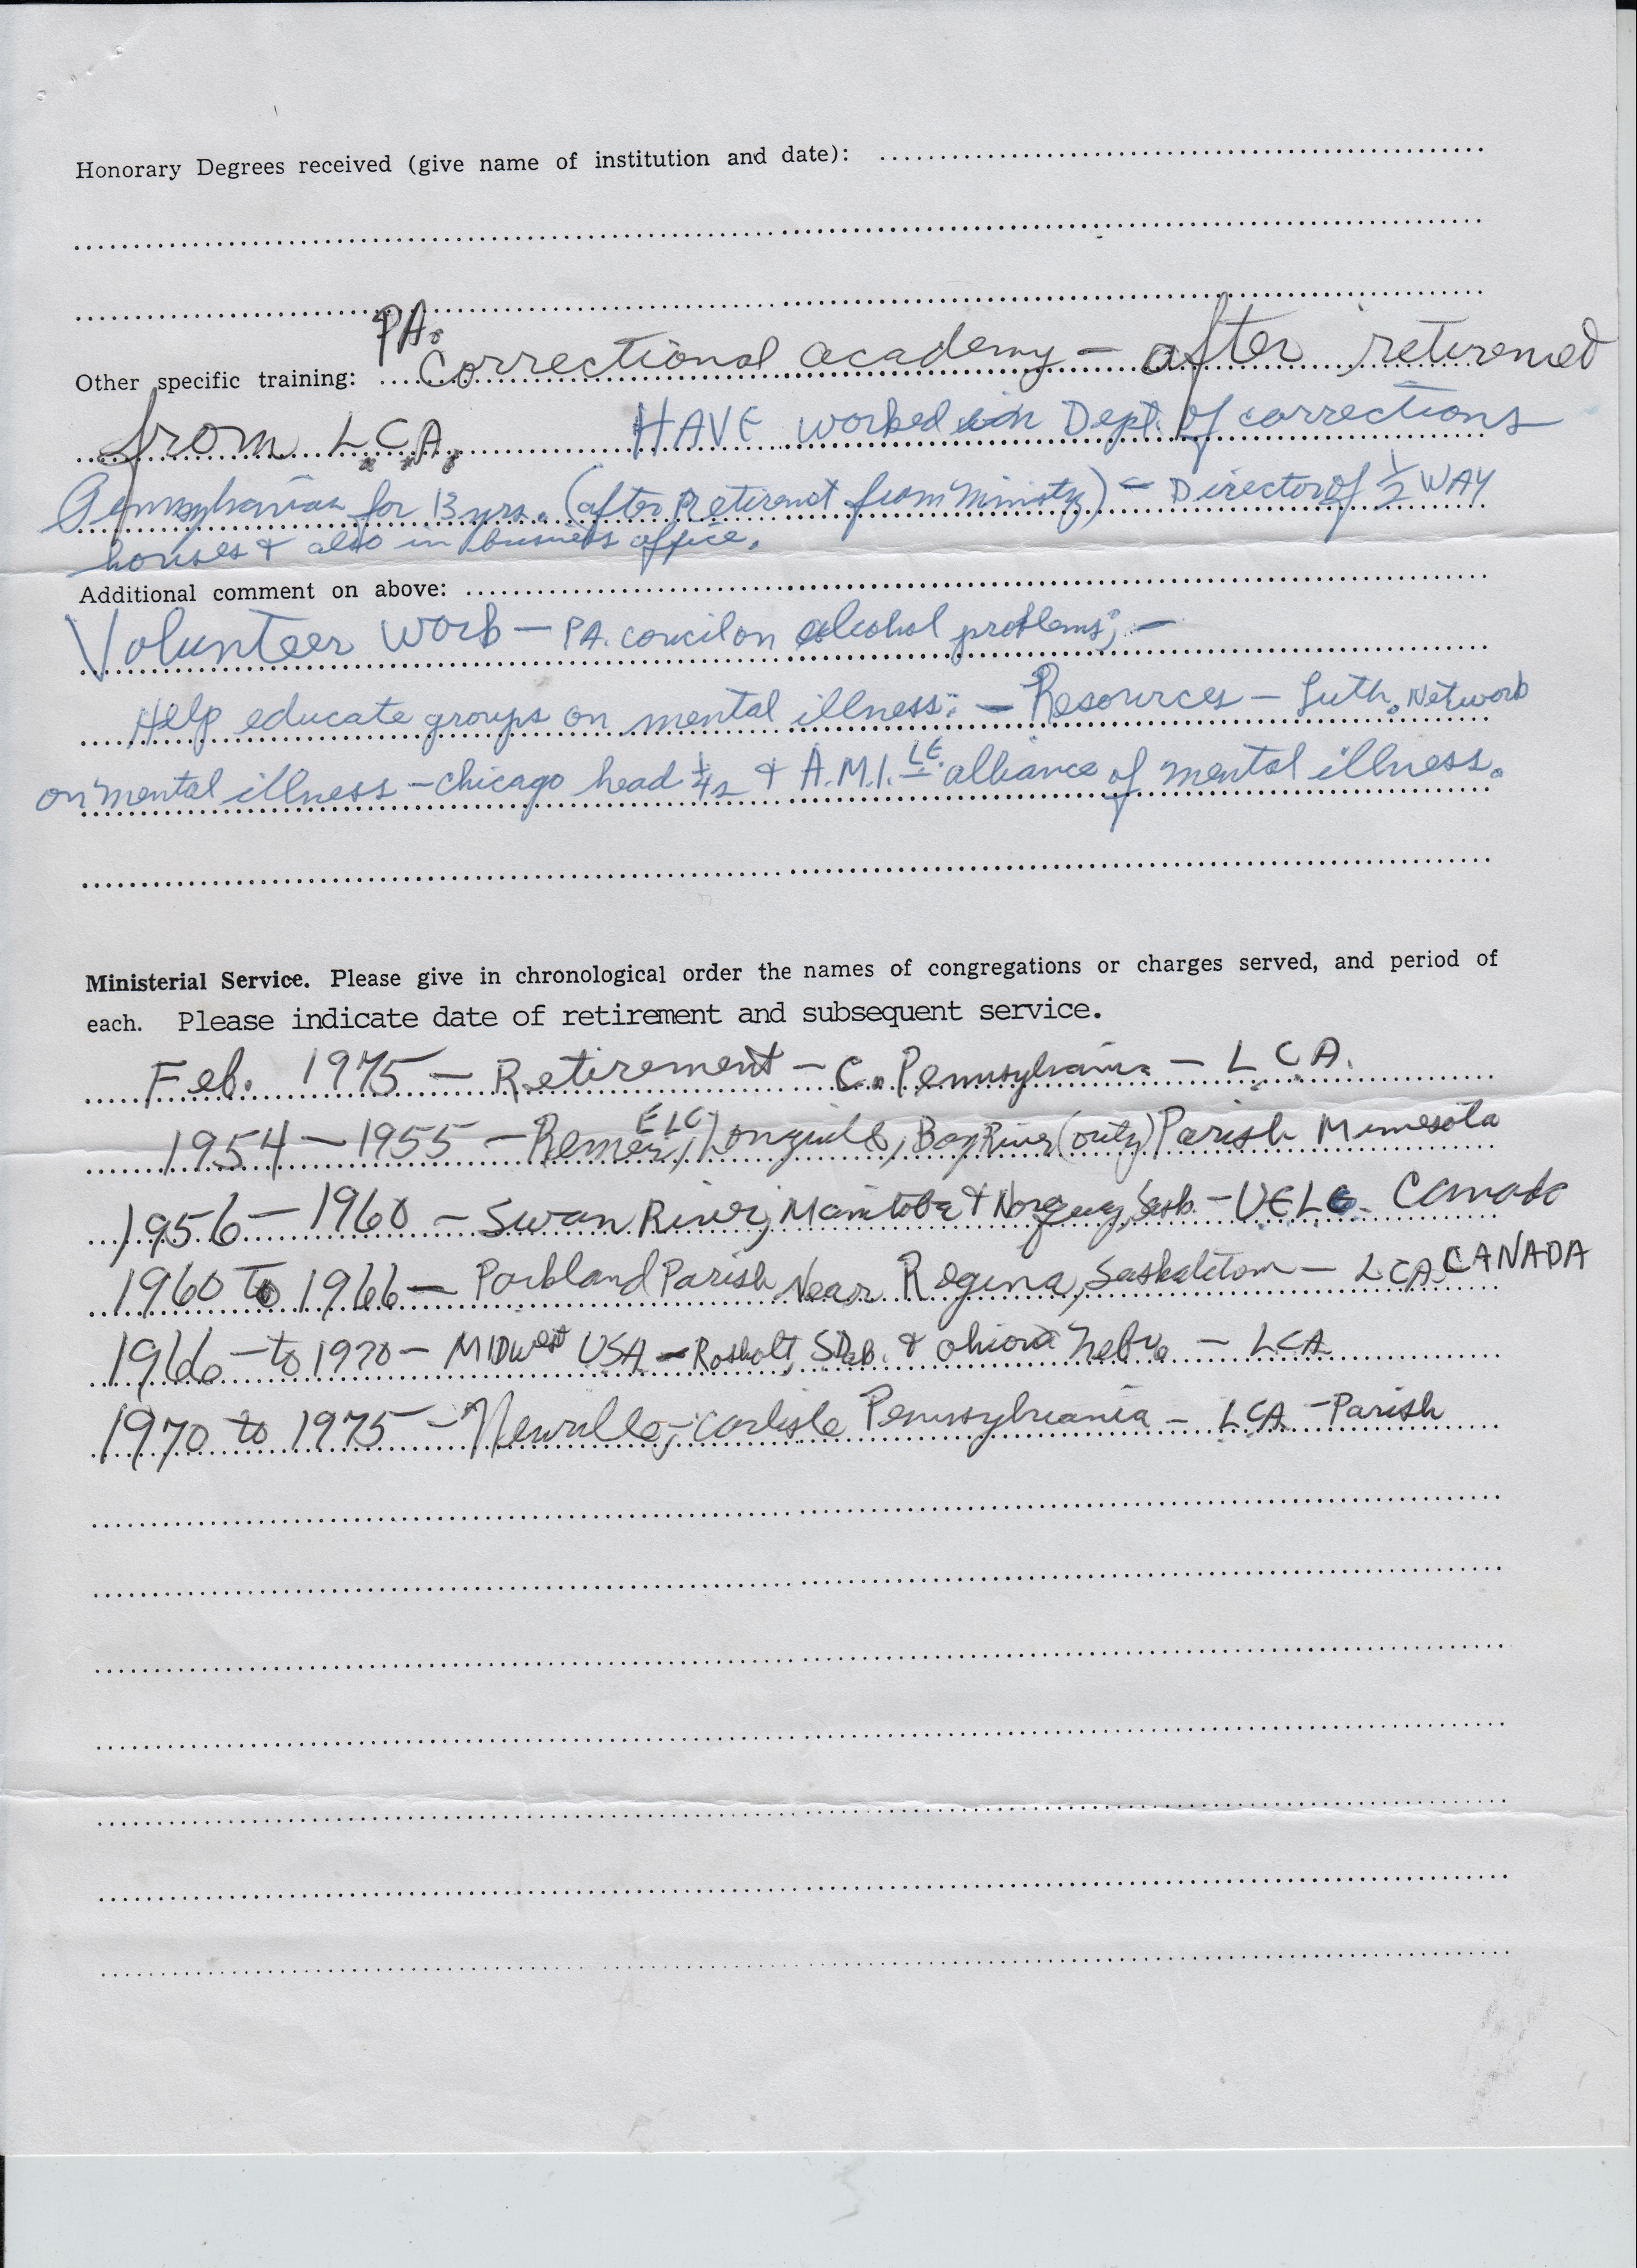 Honorary Degrees received (give name of institution and date):
PA.
Other specific training: Correctional academy – after retirement
from L.C.A. HAVE worked in Dept. of corrections
Pennsylvania for 13 yrs. (after Retiremt from Ministry) – Director of 1/2 WAY
houses & also in business office.
Additional comment on above:
Volunteer work – PA. concil on alcohol problems; –
Help educate groups on mental illness: – Resources – Luth. Network
on mental illness – chicago head 1/4s & A.M.I. I.E. alliance of mental illness.
Ministerial Service. Please give in chronological order the names of congregations or charges served, and period of
each. Please indicate date of retirement and subsequent service.
Feb. 1975 – Retirement – C. Pennsylvania – L C A.
1954 – 1955 – Remer, ELC, Longville, Boy River Parish Minnesota
1956 – 1960 – Swan River, Manitoba & Norquay, Sask. – UELC – Canada
1960 to 1966 – Parkland Parish Near Regina, – LCA CANADA
1966 – to 1970 – MIDwest USA – Rosholt, SDak. & – LCA
1970 to 1975 – Newville, – Carlisle Pennsylvania – LCA – Parish